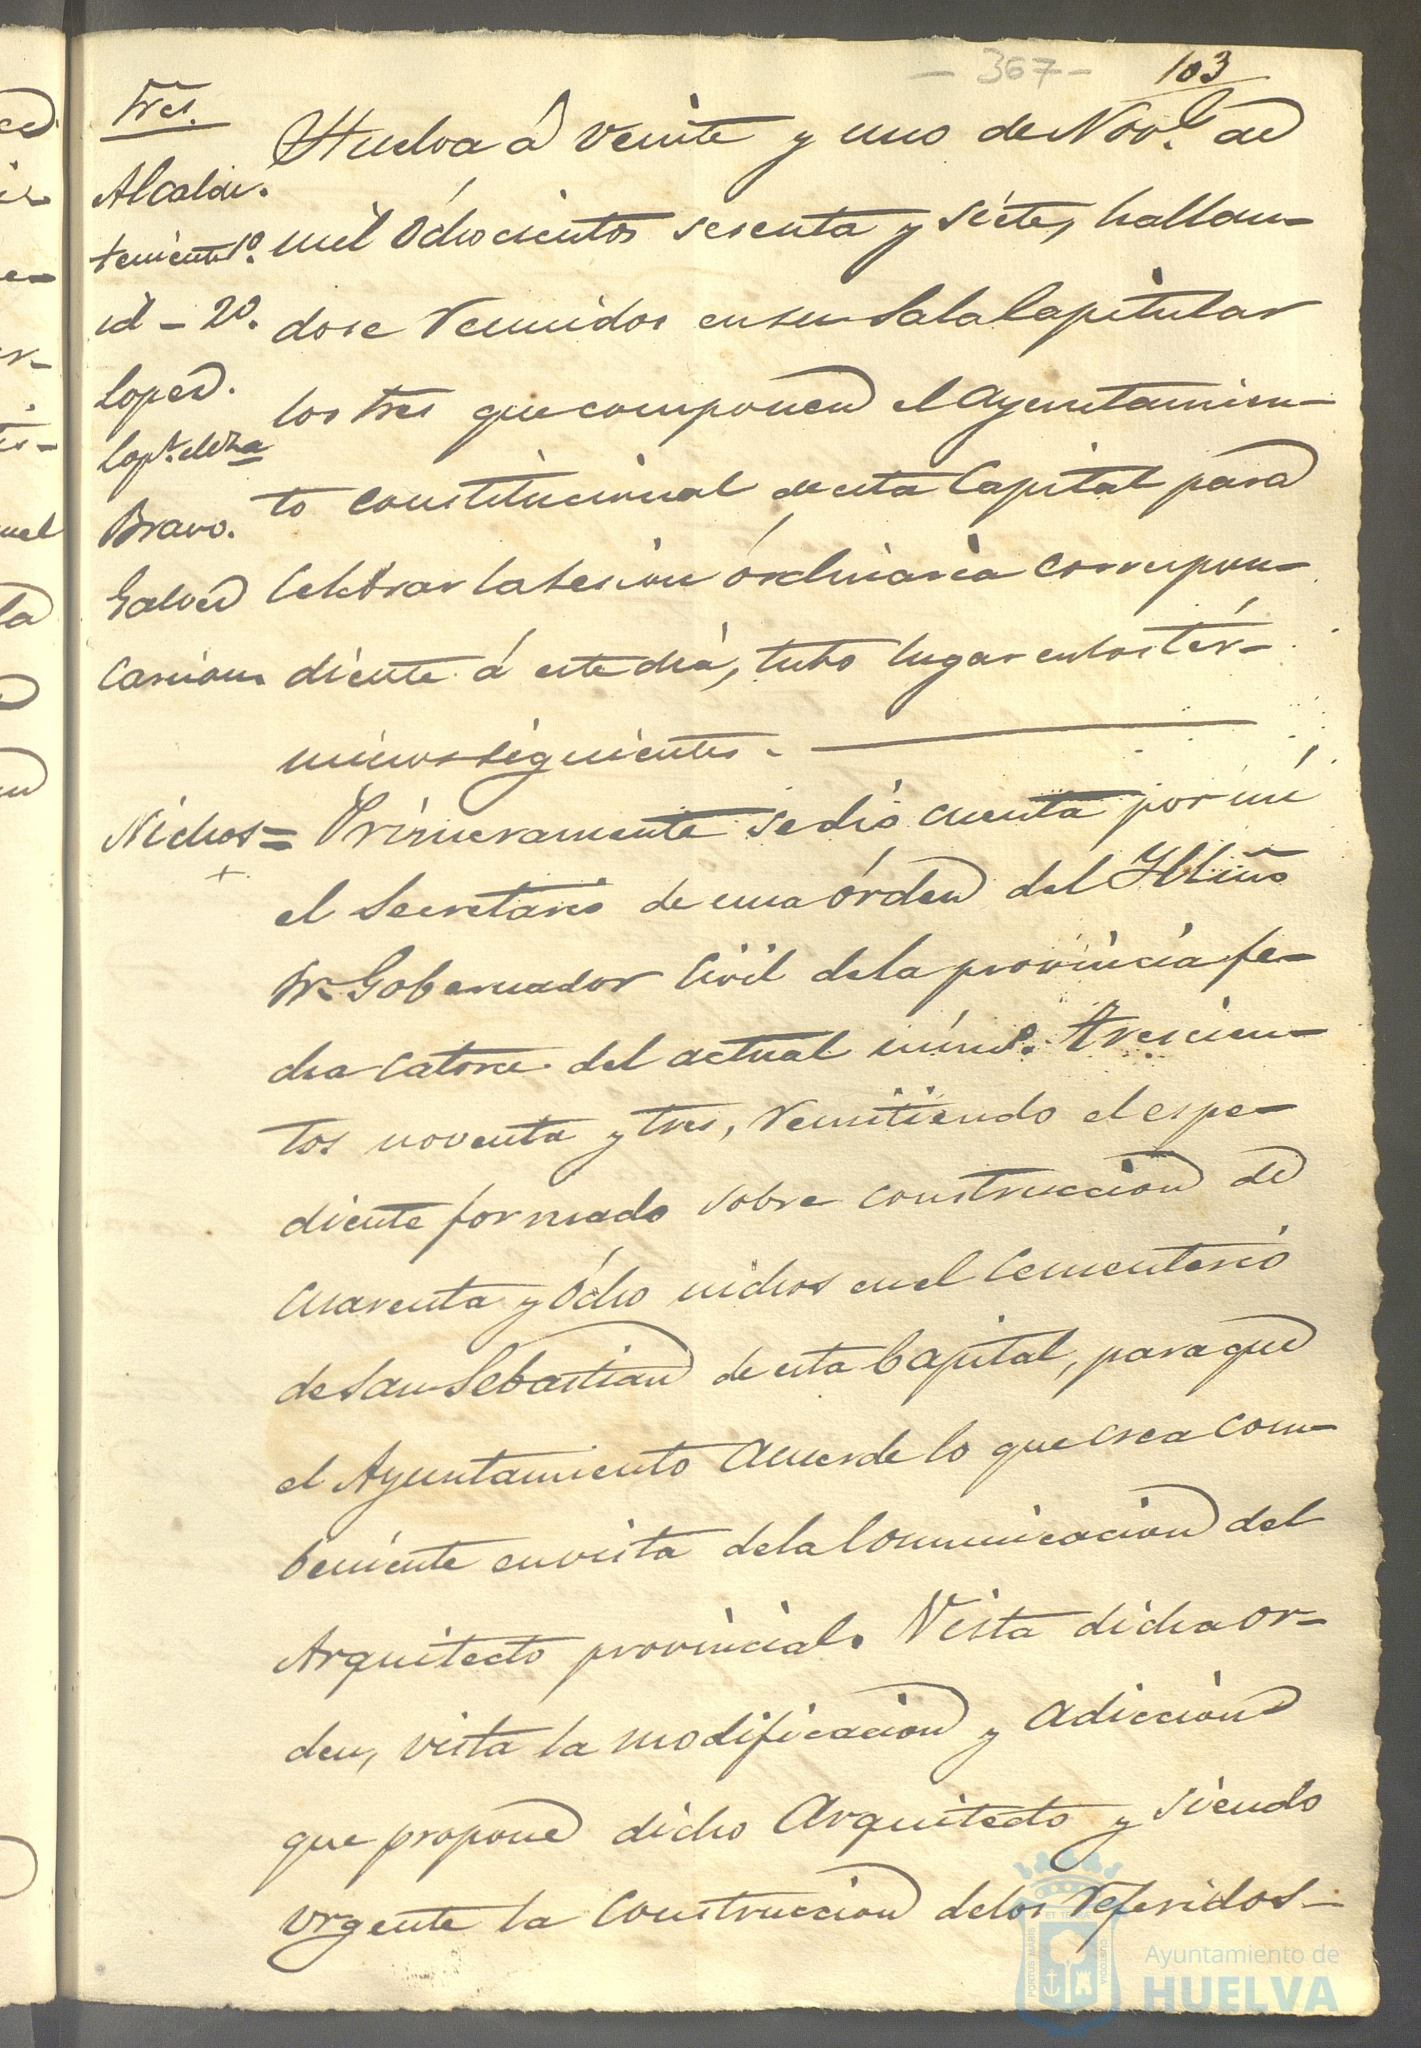 - 367 -
103
Sres.
Alcalde.
teniente 1º.
id - 2º.
Lopez.
Bravo.
Galvez
Carrion
Huelva á veinte y uno de Nove. de
mil óchocientos sesenta y siete, hallan-
dose reunidos en su Sala Capitular
los Sres que componen el Ayuntamien-
to constitucional de esta Capital para
celebrar la sesion órdinaria correspon-
diente á este dia, tubo lugar en los tér-
minos siguientes. -
Nichos =
Primeramente se dió cuenta por mí
el Secretario de una órden del Yllmo
Sr. Gobernador Civil de la provincia fe-
cha catorce del actual núm.o. trescien-
tos noventa y tres, remitiendo el espe-
diente formado sobre construccion de
cuarenta y ócho nichos en el Cementerio
de San Sebastian de esta Capital, para que
el Ayuntamiento acuerde lo que crea com-
beniente en vista de la Comunicacion del
Arquitecto provincial. Vista dicha or-
den, vista la modificacion y adiccion
que propone dicho Arquitecto y siendo
urgente la construccion de los referidos -
PORTUS MARIS ET TERRAE CUSTODIA
Ayuntamiento de
HUELVA